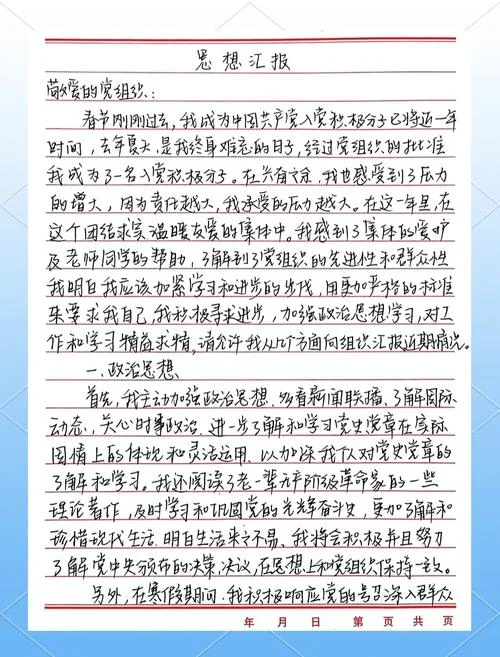 思想汇报
敬爱的党组织:
春节刚刚过去,我成为中国共产党入党积极分子已将近一年
时间,去年夏天,是我终身难忘的日子,经过党组织的批准
我成为了一名入党积极分子。在兴奋之余,我也感受到了压力
的增大,因为责任越大,我承受的压力越大。在这一年里,在
这个团结求实温暖友爱的集体中。我感到了集体的爱护
及老师同学的帮助,了解到了党组织的先进性和群众性
我明白我应该加紧学习和进步的步伐,用更加严格的标准
来要求我自己,我积极寻求进步,加强政治思想学习,对工
作和学习精益求精,请允许我从几个方面向组织汇报近期情况。
一、政治思想
首先,我主动加强政治思想,多看新闻联播,了解国际
动态,关心时事政治,进一步了解和学习党史党章在实际
国情上的体现和灵活运用,以加深我个人对党史党章的
了解和学习。我还阅读了老一辈无产阶级革命家的一些
理论著作,及时学习和巩固党的光辉奋斗史,更加了解和
珍惜现代生活,明白生活来之不易、我将会积极并且努力
了解党中央颁布的决策、决议,在思想上和党组织保持一致。
另外,在寒假期间,我积极响应党的号召深入群众
年 月 日 第 页 共 页